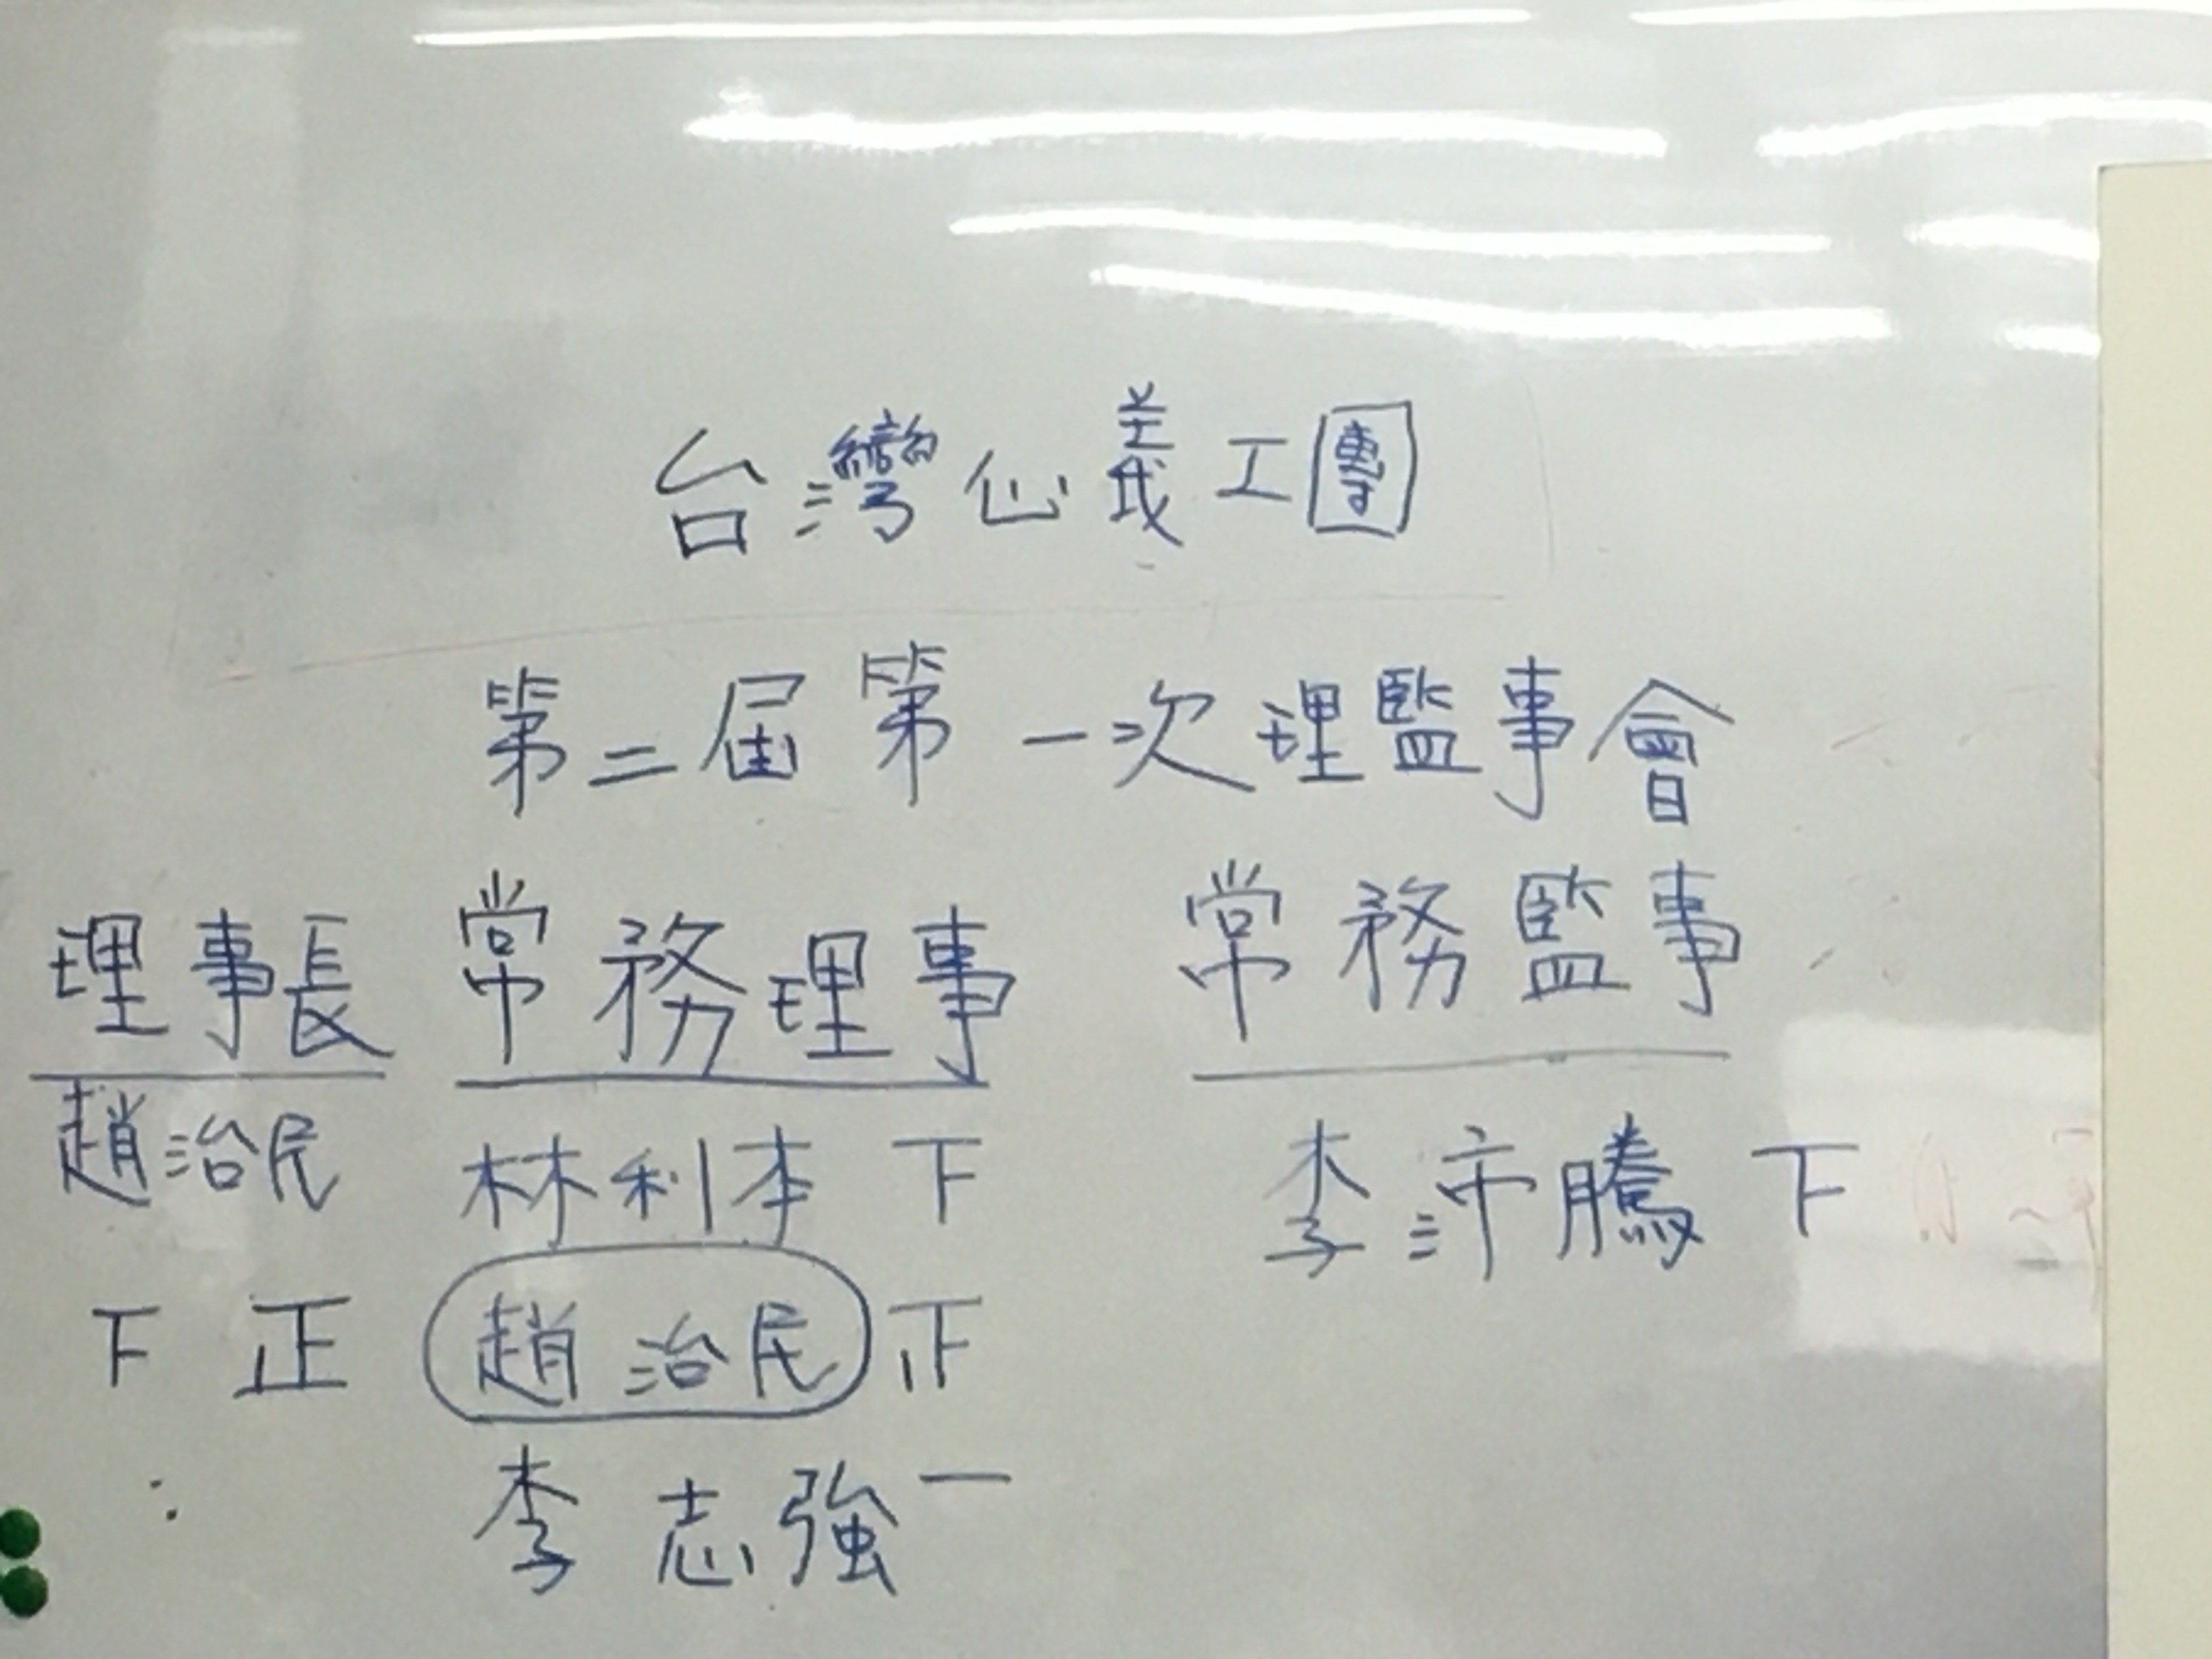 台灣心義工團
第二屆第一次理監事會
理事長 常務理事 常務監事
趙治民 林利本 下 李沛騰 下
下 正 趙治民 正
李志強 一